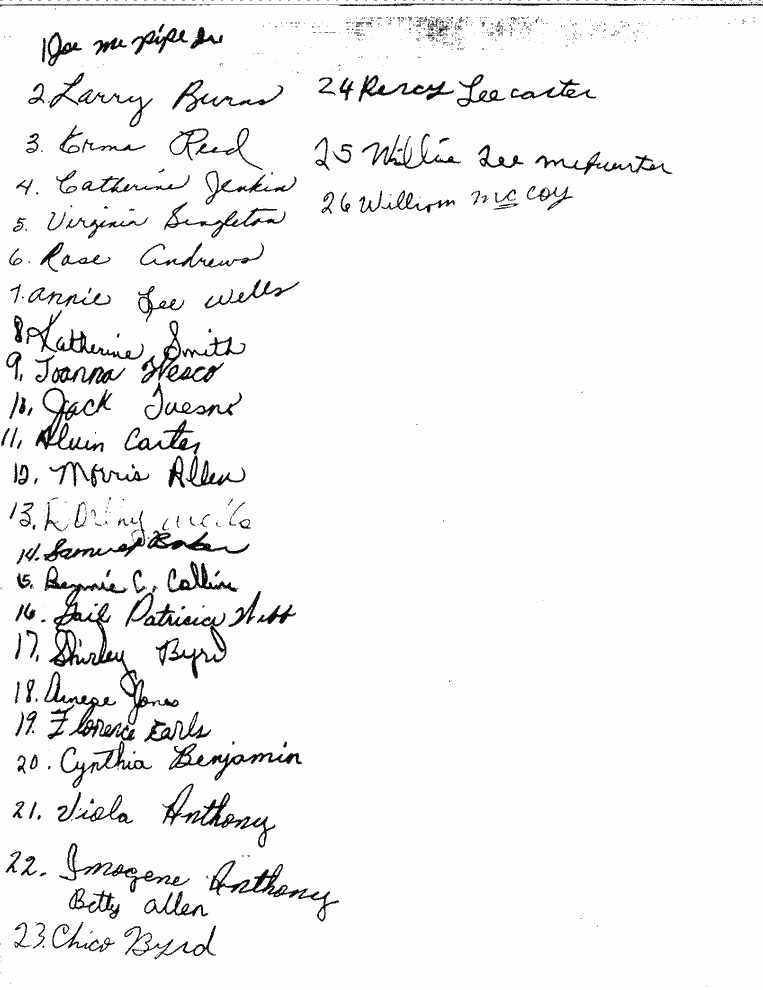 1 Joe mc pipe Jr
2. Larry Burns
3. Erma Reed
4. Catherine Jenkin
5. Virginia Singleton
6. Rose Andrews
7. Annie Lee Wells
8. Katherine Smith
9. Joanna Wesco
10. Jack
11. Alvin Carter
12. Morris Allen
13.
14. Samuel Baker
15. Bennie C. Collins
16. Gail Patricia Webb
17. Shirley Byrd
18. Jones
19. Florence Earls
20. Cynthia Benjamin
21. Viola Anthony
22. Imogene Anthony
Betty Allen
23. Chico Byrd
24 Percy Lee carter
25 Willie Lee
26 William mc coy